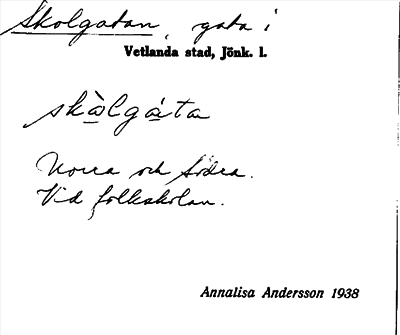 Skolgatan, gata i
Vetlanda stad, Jönk. l.
skὰlgάta
Norra och Södra.
Vid folkskolan.
Annalisa Andersson 1938